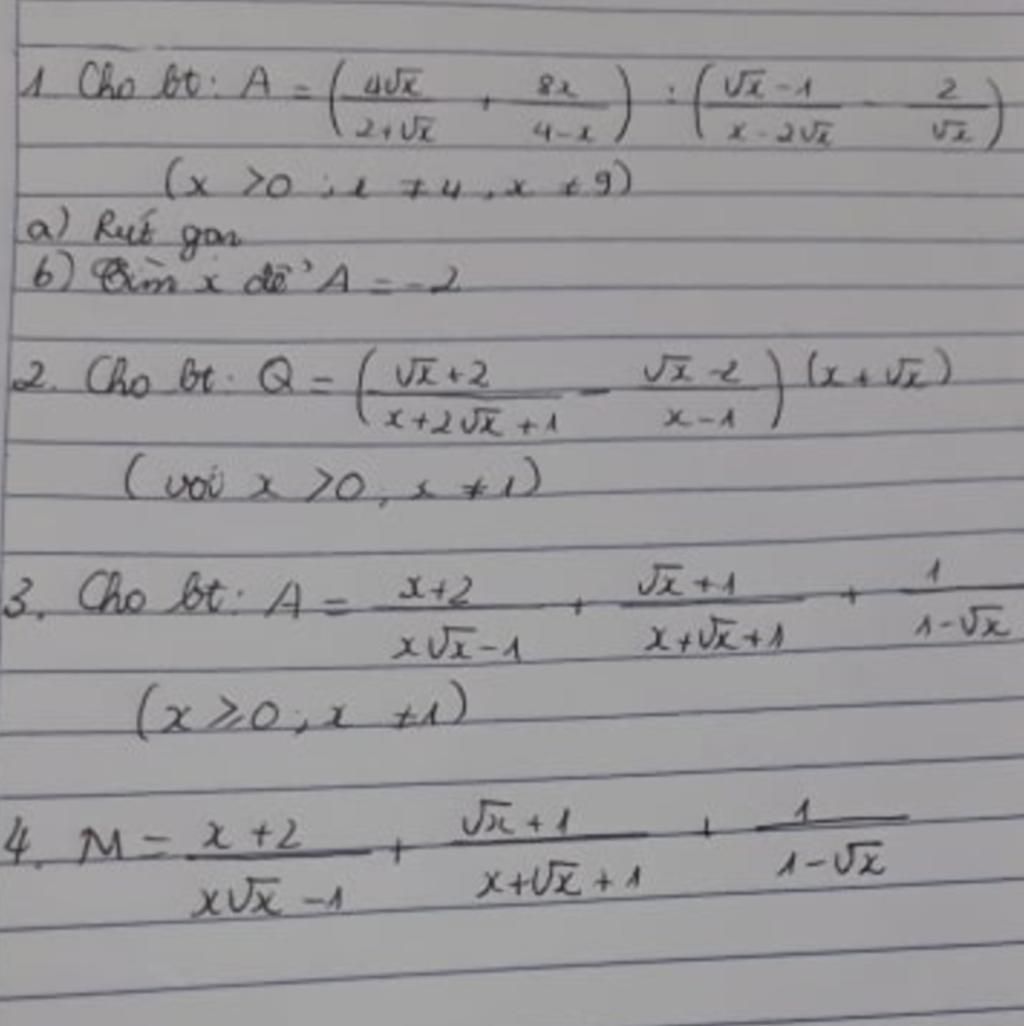 1. Cho bt: A = (4√x / 2+√x + 8x / 4-x) : (√x-1 / x-2√x - 2 / √x)
(x >0 ; x ≠ 4, x ≠ 9)
a) Rút gọn
b) Tìm x để A = -2
2. Cho bt: Q = (√x+2 / x+2√x+1 - √x-2 / x-1) (x+√x)
(với x >0, x ≠ 1)
3. Cho bt: A = x+2 / x√x-1 + √x+1 / x+√x+1 + 1 / 1-√x
(x ≥ 0 ; x ≠ 1)
4. M = x+2 / x√x-1 + √x+1 / x+√x+1 + 1 / 1-√x